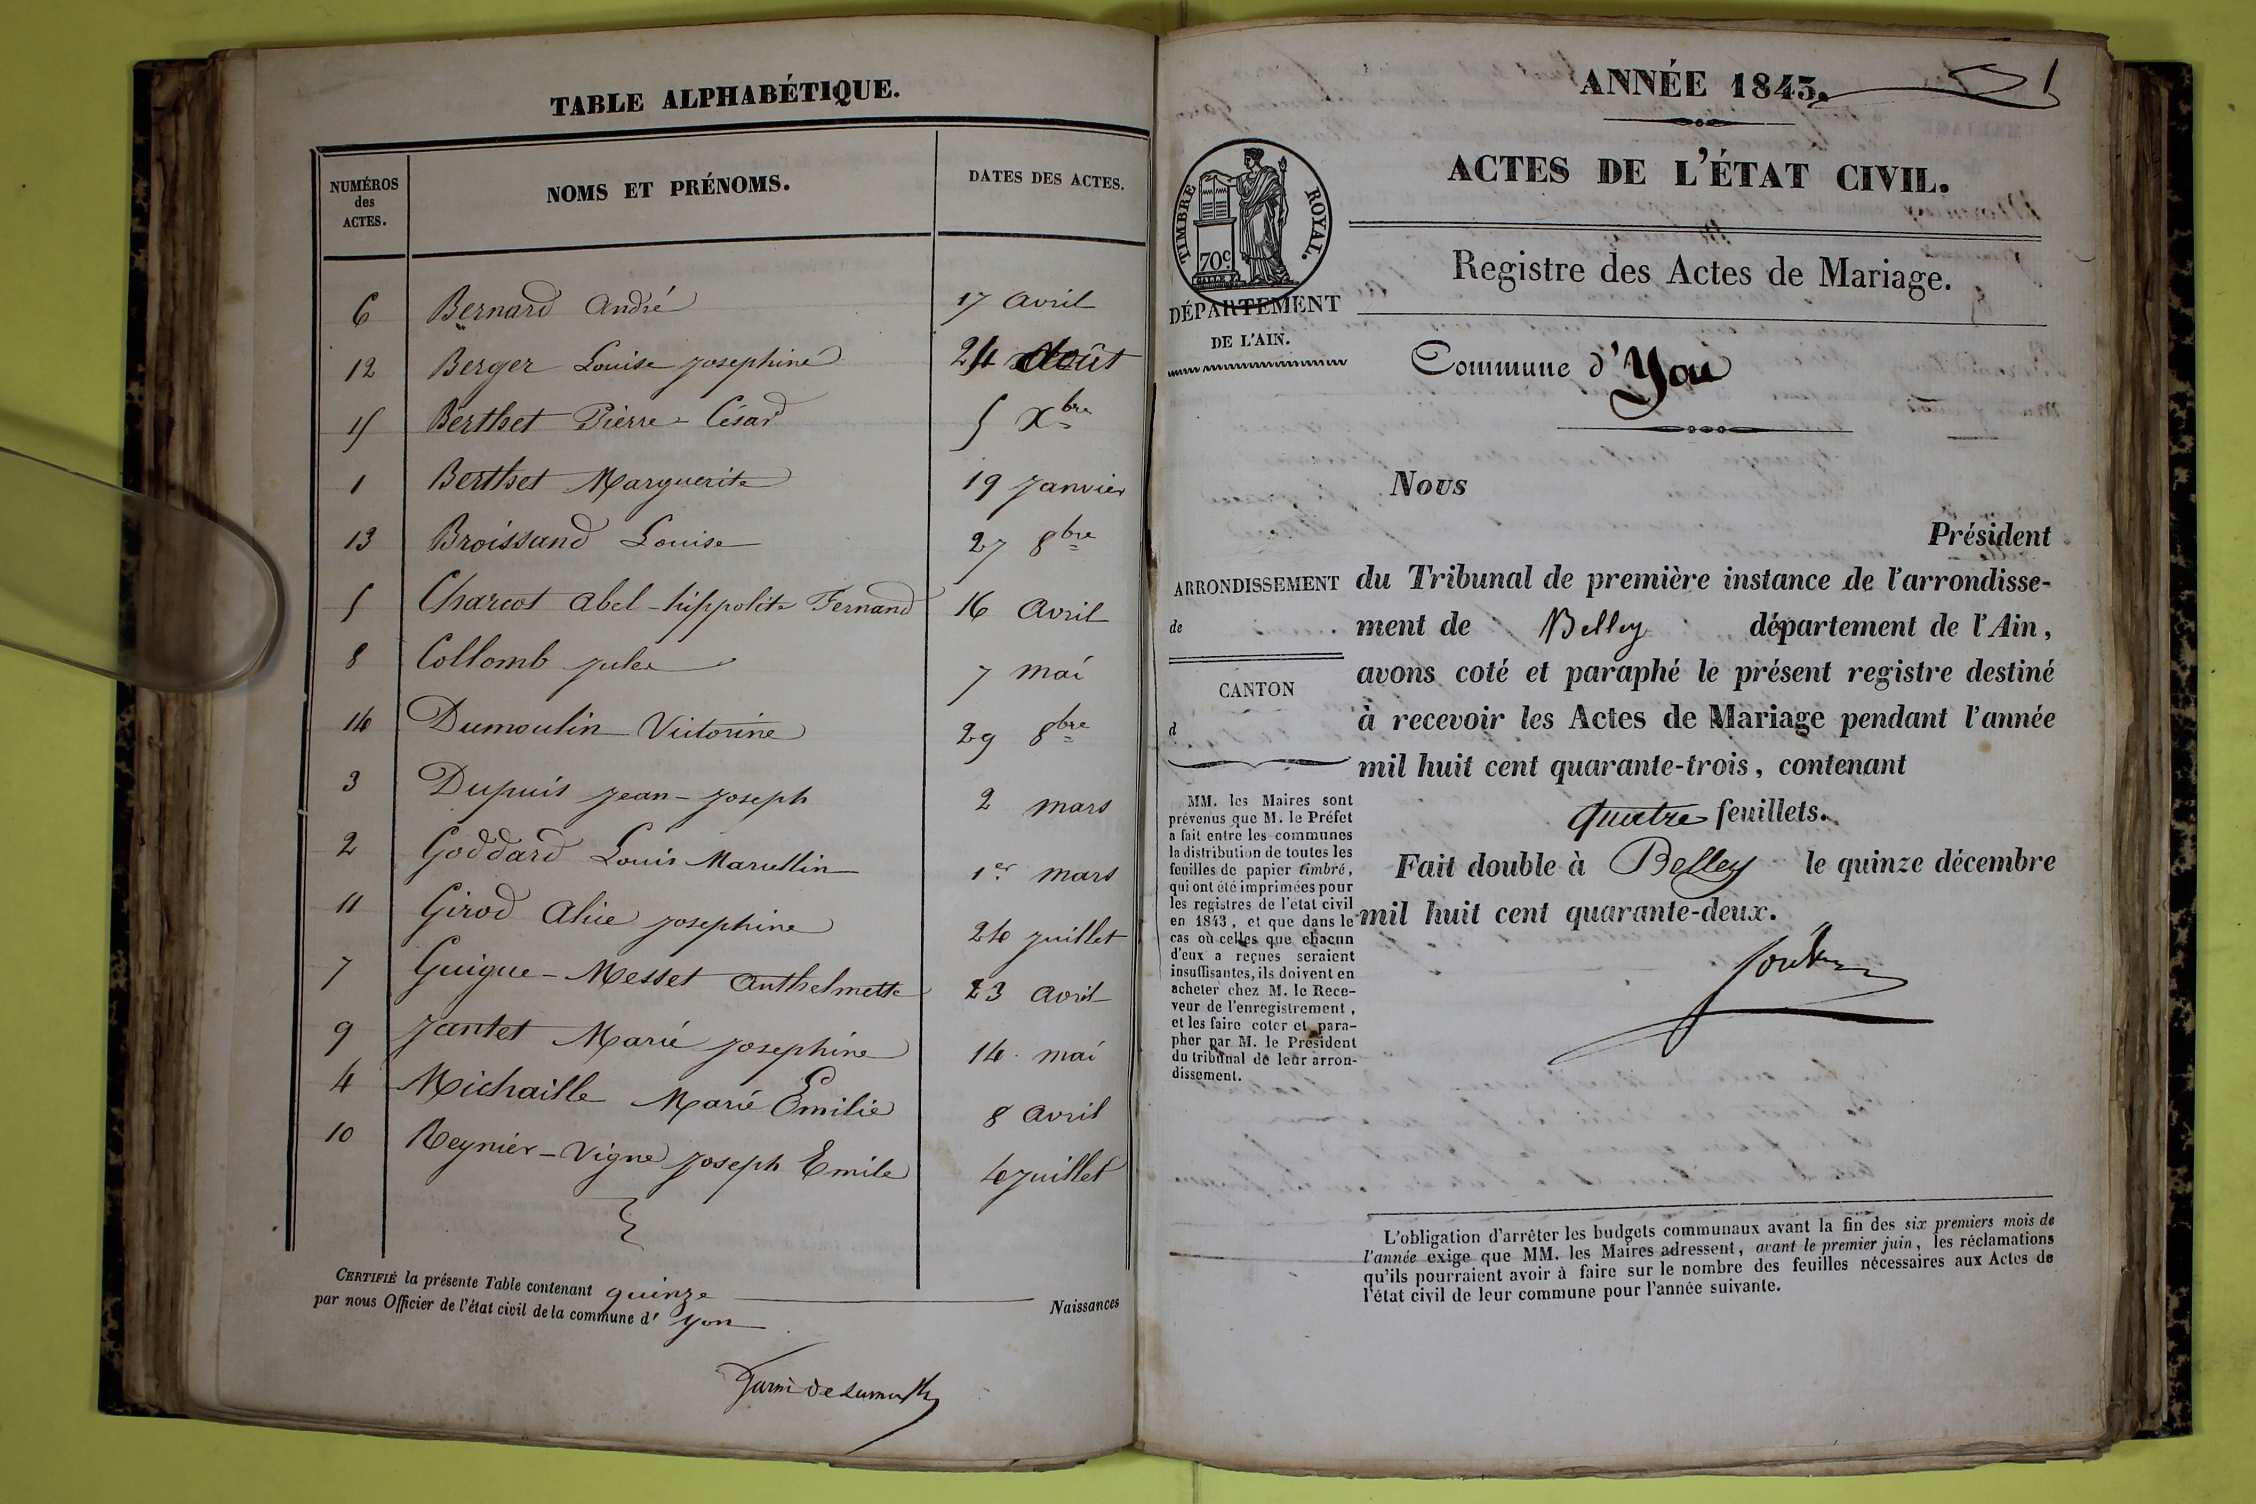 TABLE ALPHABÉTIQUE.
NUMÉROS des ACTES. NOMS ET PRÉNOMS. DATES DES ACTES.
6 Bernard André 17 avril
12 Berger Louise Josephine 24 Août
15 Berthet Pierre-César 5 Xbre
1 Berthet Marguerite 19 Janvier
13 Broissand Louise 27 8bre
5 Charcot Abel-hippolite Fernand 16 avril
8 Collomb Jules 7 mai
14 Dumoulin Victorine 29 8bre
3 Dupuis Jean-Joseph 2 mars
2 Goddard Louis Marcellin 1er mars
11 Girod Alice Josephine 24 juillet
7 Guigue-Messet Anthelmette 23 avril
9 Jantet Marie Josephine 14 mai
4 Michaille Marie Emilie 8 avril
10 Reynier-Vigne Joseph Emile 4 juillet
CERTIFIÉ la présente Table contenant quinze Naissances
par nous Officier de l'état civil de la commune d' Yon
ANNÉE 1843. 1
ACTES DE L'ÉTAT CIVIL.
TIMBRE ROYAL.
70c
DÉPARTEMENT
DE L'AIN.
Registre des Actes de Mariage.
Commune d'Yon
Nous
Président
du Tribunal de première instance de l'arrondisse-
ment de Belley département de l'Ain,
avons coté et paraphé le présent registre destiné
à recevoir les Actes de Mariage pendant l'année
mil huit cent quarante-trois, contenant
quatre feuillets.
Fait double à Belley le quinze décembre
mil huit cent quarante-deux.
ARRONDISSEMENT
de
CANTON
d
MM. les Maires sont
prévenus que M. le Préfet
a fait entre les communes
la distribution de toutes les
feuilles de papier timbré,
qui ont été imprimées pour
les registres de l'état civil
en 1843, et que dans le
cas où celles que chacun
d'eux a reçues seraient
insuffisantes, ils doivent en
acheter chez M. le Rece-
veur de l'enregistrement,
et les faire coter et para-
pher par M. le Président
du tribunal de leur arron-
dissement.
L'obligation d'arrêter les budgets communaux avant la fin des six premiers mois de
l'année exige que MM. les Maires adressent, avant le premier juin, les réclamations
qu'ils pourraient avoir à faire sur le nombre des feuilles nécessaires aux Actes de
l'état civil de leur commune pour l'année suivante.